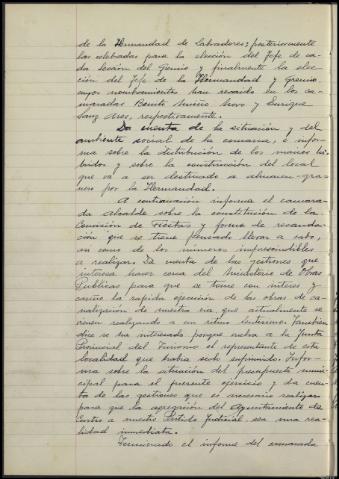 de la Hermandad de Labradores; posteriormente
las celebradas para la elección del Jefe de ca-
da Sección del Gremio y finalmente la elec-
ción del Jefe de la Hermandad y Gremio
cuyos nombramientos han recaído en los ca-
maradas Benito Muñoz Novo y Enrique
Sanz Ares, respectivamente.
Da cuenta de la situación y del
ambiente social de la comarca, é infor-
ma sobre la distribución de los maíces hí-
bridos y sobre la construcción del local
que va a ser destinado a almacen-gra-
nero por la Hermandad.
A continuación informa el camara-
da Alcalde sobre la constitución de la
Comisión de Fiestas y forma de recauda-
ción que se tiene pensado llevar a cabo,
así como de los números imprescindibles
a realizar. Da cuenta de las gestiones que
interesa hacer cerca del Ministerio de Obras
Públicas para que se tome con interés y
cariño la rápida ejecución de las obras de ca-
nalización de nuestra ria que actualmente se
vienen realizando a un ritmo lentísimo. También
dice se ha interesado porque vaya a la Junta
Provincial del Turismo el representante de esta
localidad que había sido suprimido. Infor-
ma sobre la situación del presupuesto muni-
cipal para el presente ejercicio y da cuen-
ta de las gestiones que es necesario realizar
para que la agregación del Ayuntamiento de
Castro a nuestro Partido Judicial sea una rea-
lidad inmediata.
Terminado el informe del camarada